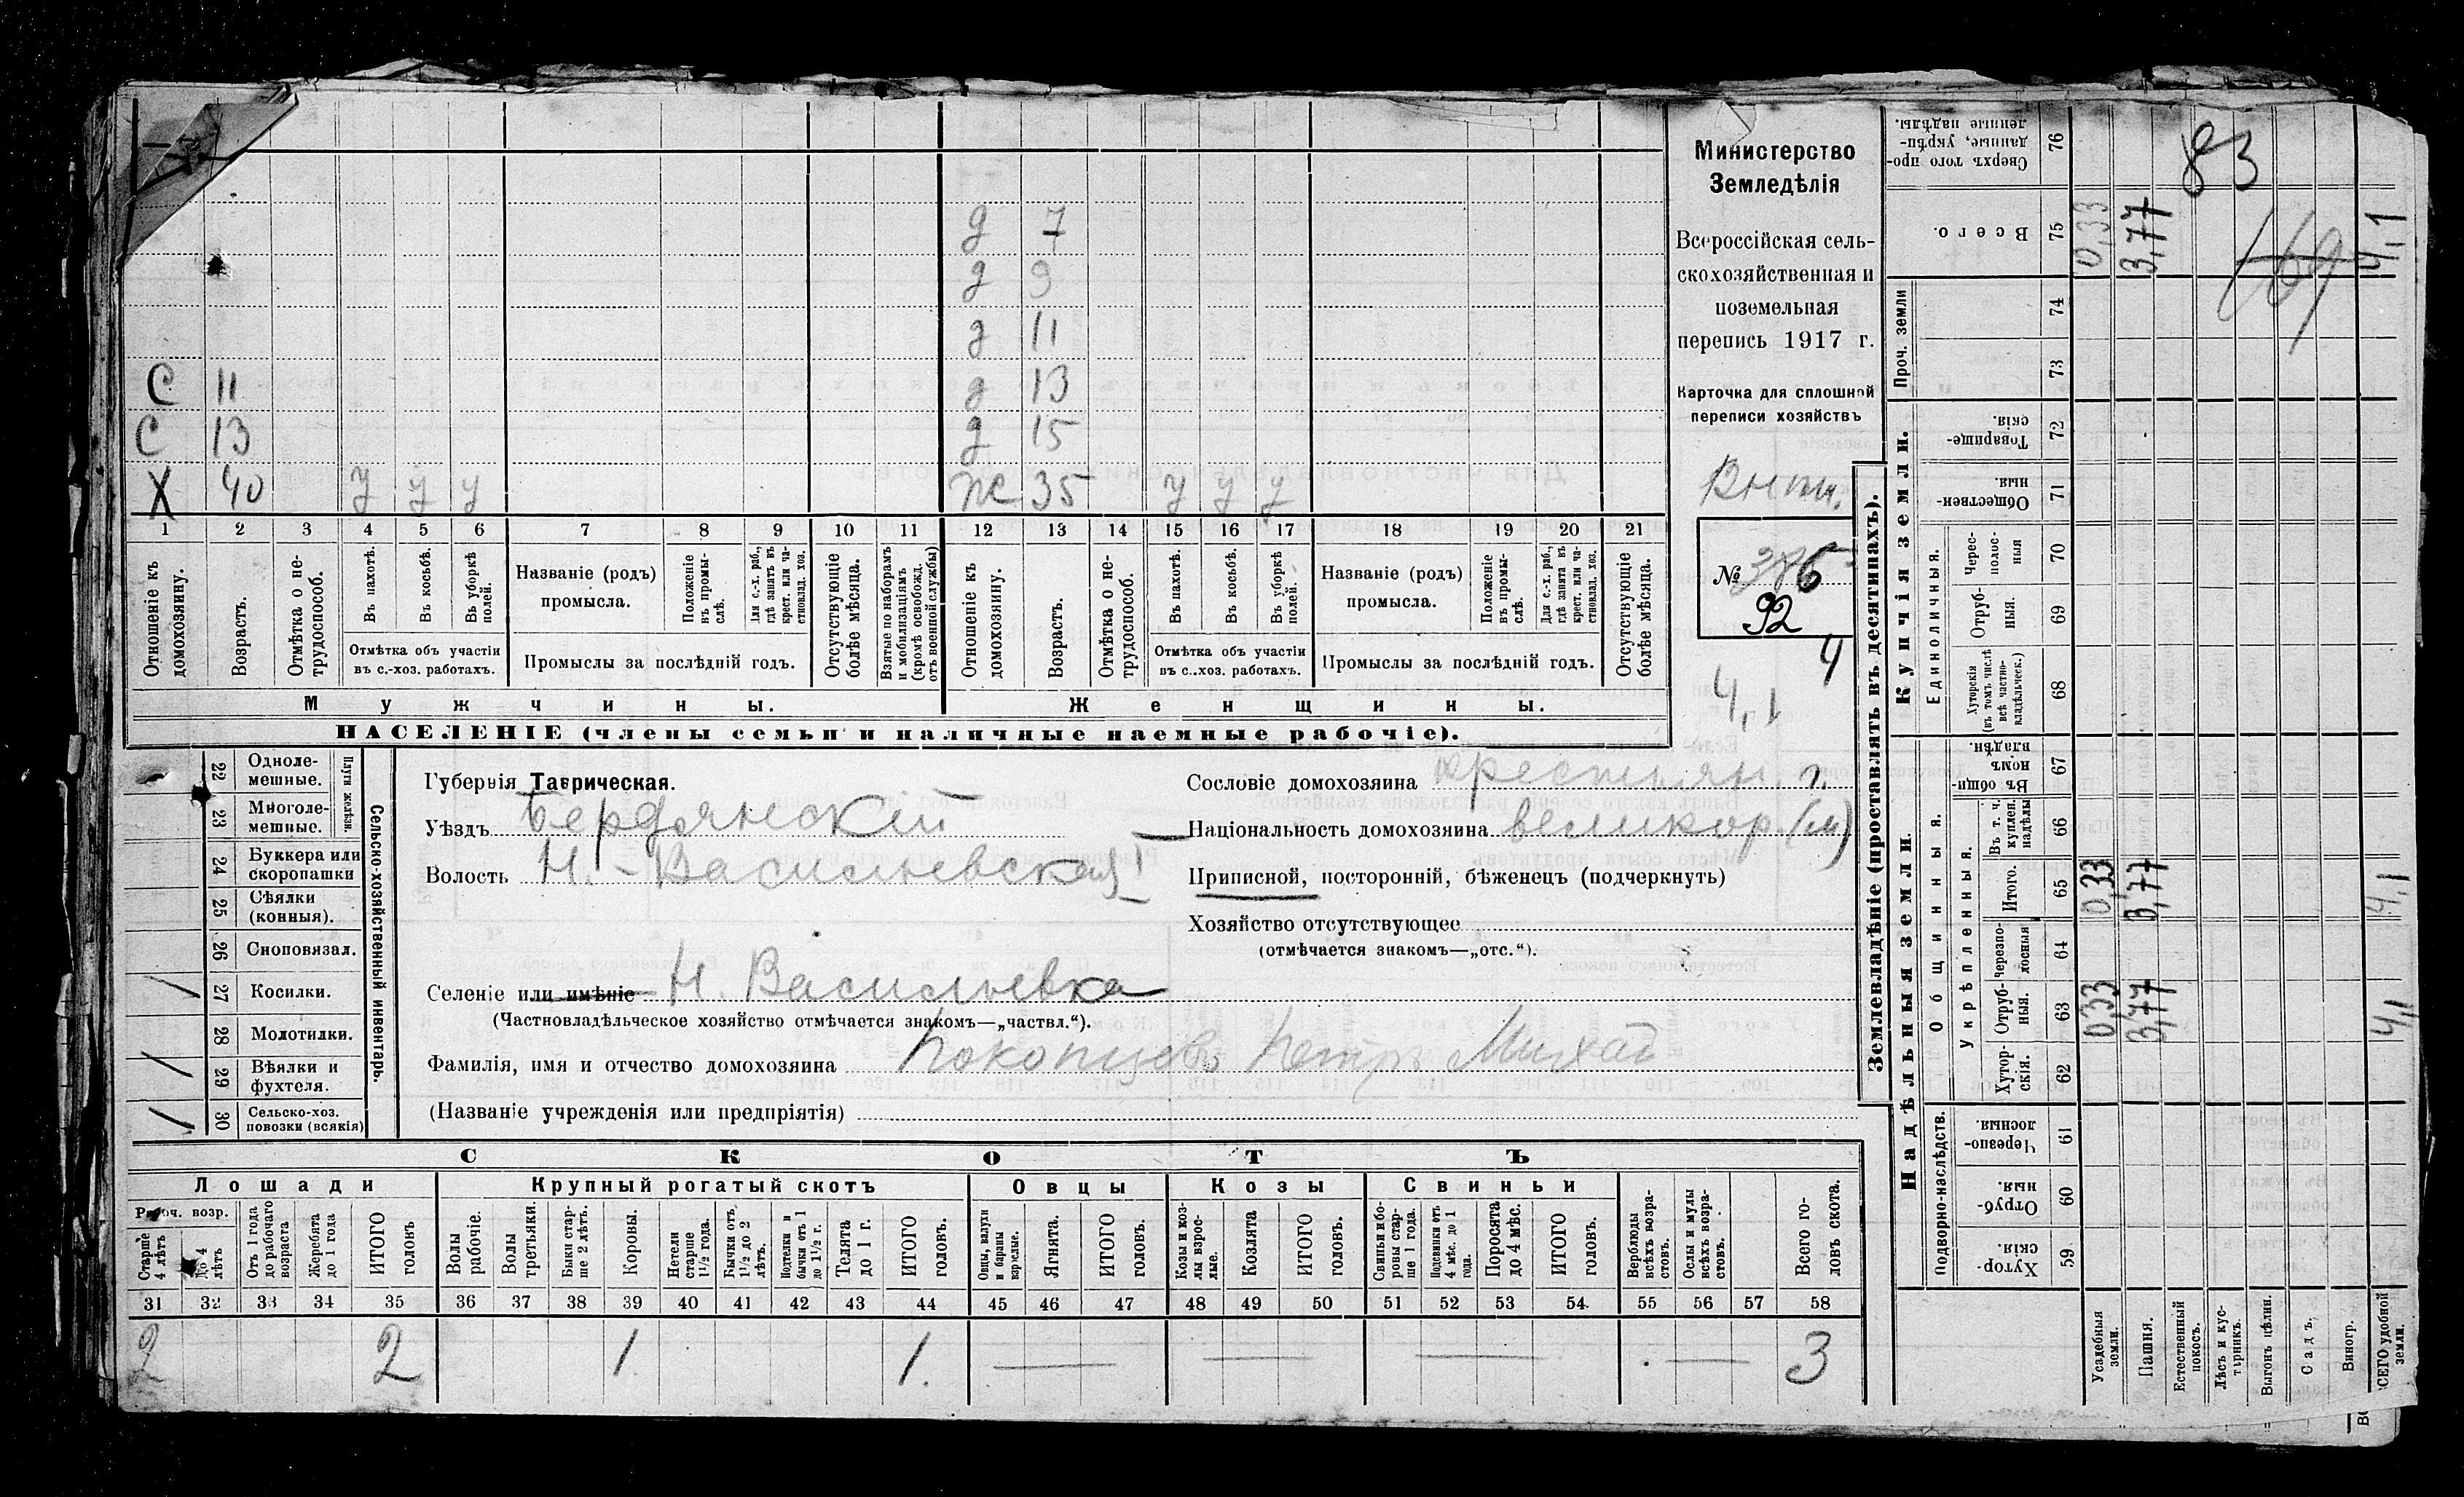 д 7
д 9
д 11
С 11 д 13
С 13 д 15
Х 40 у у у ж 35 у у у
1 2 3 4 5 6 7 8 9 10 11 12 13 14 15 16 17 18 19 20 21
Отношеніе къ домохозяину.
Возрастъ.
Отмѣтка о не-
трудоспособ.
Въ пахотѣ.
Въ косьбѣ.
Въ уборкѣ
полей.
Отмѣтка объ участіи
въ с.-хоз. работахъ.
Названіе (родъ)
промысла.
Положеніе
въ промы-
слѣ.
Для с.-х. раб.,
гдѣ занятъ въ
крест. или ча-
стновлад. хоз.
Промыслы за послѣдній годъ.
Отсутствующіе
болѣе мѣсяца.
Взятые по наборамъ
и мобилизаціямъ
(кромѣ освобожд.
отъ военной службы)
Отношеніе къ
домохозяину.
Возрастъ.
Отмѣтка о не-
трудоспособ.
Въ пахотѣ.
Въ косьбѣ.
Въ уборкѣ
полей.
Отмѣтка объ участіи
въ с.-хоз. работахъ.
Названіе (родъ)
промысла.
Положеніе
въ промы-
слѣ.
Для с.-х. раб.,
гдѣ занята въ
крест. или ча-
стновлад. хоз.
Промыслы за послѣдній годъ.
Отсутствующіе
болѣе мѣсяца.
Мужчины.
Женщины.
НАСЕЛЕНІЕ (члены семьи и наличные наемные рабочіе).
Министерство
Земледѣлія
Всероссійская сель-
скохозяйственная и
поземельная
перепись 1917 г.
Карточка для сплошной
переписи хозяйствъ
№
92
4
4,1
22 Одноле-
мешные.
23 Многоле-
мешные.
Плуги желѣзн.
24 Буккера или
скоропашки
25 Сѣялки
(конныя).
26 Сноповязал.
27 Косилки.
28 Молотилки.
29 Вѣялки и
фухтеля.
30 Сельско-хоз.
повозки (всякія)
Сельско-хозяйственный инвентарь.
Губернія Таврическая.
Уѣздъ Бердянскій
Волость Н.-Васильевская I
Селеніе или имѣніе Н. Васильевка
(Частновладѣльческое хозяйство отмѣчается знакомъ—„частвл.“).
Фамилія, имя и отчество домохозяина Петръ Михай
(Названіе учрежденія или предпріятія)
Сословіе домохозяина крестьян.
Національность домохозяина великор. (м)
Приписной, посторонній, бѣженецъ (подчеркнуть)
Хозяйство отсутствующее
(отмѣчается знакомъ—„отс.“).
СКОТЪ
Лошади
Крупный рогатый скотъ
Овцы
Козы
Свиньи
Рабоч. возр.
Старше
4 лѣтъ
До 4
лѣтъ
Отъ 1 года
до рабочаго
возраста
Жеребята
до 1 года
ИТОГО
головъ
Волы
рабочіе.
Волы
третьяки.
Быки стар-
ше 2 лѣтъ.
Коровы.
Нетели
старше
1½ года.
Бычки отъ
1½ до 2
лѣтъ.
Подтелки и
бычки отъ 1
до 1½ г.
Телята
до 1 г.
ИТОГО
головъ.
Овцы, валухи
и бараны
взрослые.
Ягнята.
ИТОГО
головъ.
Козы и коз-
лы взрос-
лые.
Козлята
ИТОГО
головъ.
Свиньи и бо-
ровы стар-
ше 1 года.
Подсвинки отъ
4 мѣс. до 1
года.
Поросята
до 4 мѣс.
ИТОГО
головъ.
Верблюды
всѣхъ возра-
стовъ.
Ослы и мулы
всѣхъ возра-
стовъ.
Всего го-
ловъ скота.
31 32 33 34 35 36 37 38 39 40 41 42 43 44 45 46 47 48 49 50 51 52 53 54 55 56 57 58
2 2 1 1. — — — — 3
Землевладѣніе (проставлять въ десятинахъ).
Надѣльныя земли.
Купчія земли.
Проч. земли
Подворно-наслѣдств.
Общинныя.
Укрѣпленныя.
Единоличныя.
Сверхъ того про-
данные, укрѣп-
ленные надѣлы.
76
Всего.
75
74
73
Товарище-
скія.
72
Обществен-
ныя.
71
Черес-
полос-
ныя
70
Отруб-
ныя.
69
Хуторскія
(въ томъ числѣ
всѣ частно-
владѣльческ.)
68
Въ общин-
номъ
владѣн.
67
Въ т. ч.
куплен.
надѣлы
66
Итого.
65
Черезпо-
лосныя
64
Отруб-
ныя.
63
Хутор-
скія.
62
Черезпо-
лосныя.
61
Отруб-
ныя.
60
Хутор-
скія.
59
Усадебныя
земли.
Пашня.
Естественный
покосъ.
Лѣсъ и кус-
тарникъ.
Выгонъ цѣлин.
Садъ.
Виногр.
ВСЕГО удобной
земли.
83
169
0,33
3,77
4,1
0,33
3,77
4,1
0,33
3,77
4,1